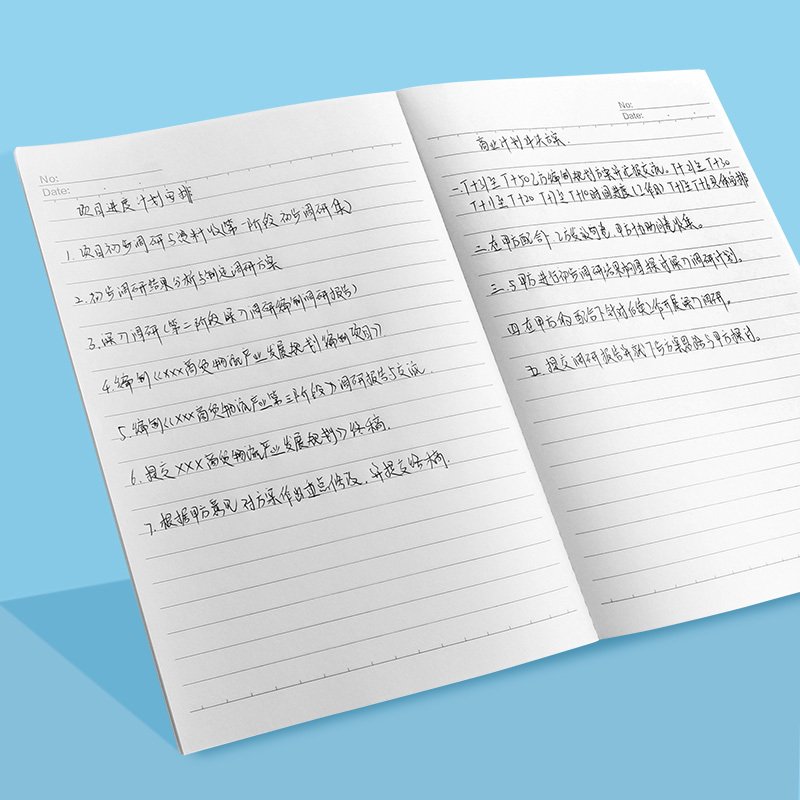 No:
Date:
项目进展计划安排
1. 项目初步调研与资料收(第一阶段初步调研集)
2. 初步调研结果分析与制定调研方案
3. 深入调研(第二阶段深入调研编制调研报告)
4. 编制《XXX商贸物流产业发展规划编制项目》
5. 编制《XXX商贸物流产业第三阶段》调研报告与交流
6. 提交XXX商贸物流产业发展规划》终稿.
7. 根据甲方意见对方案作出重点修改, 并提交终稿.
No:
Date:
商业计划方案
一. T+31至T+50乙方编制规划方案并汇报交流。T+21至T+30
T+11至T+20 T+1至T+10时间进度(工作日) T+1至T+5具体安排
二. 在甲方配合下乙方发放问卷 甲方协助问卷收集。
三. 与甲方进行初步调研结果沟通探讨深入调研计划。
四. 在甲方的配合下针对后续工作开展深入调研。
五. 提交调研报告并就下与方案思路与甲方探讨。